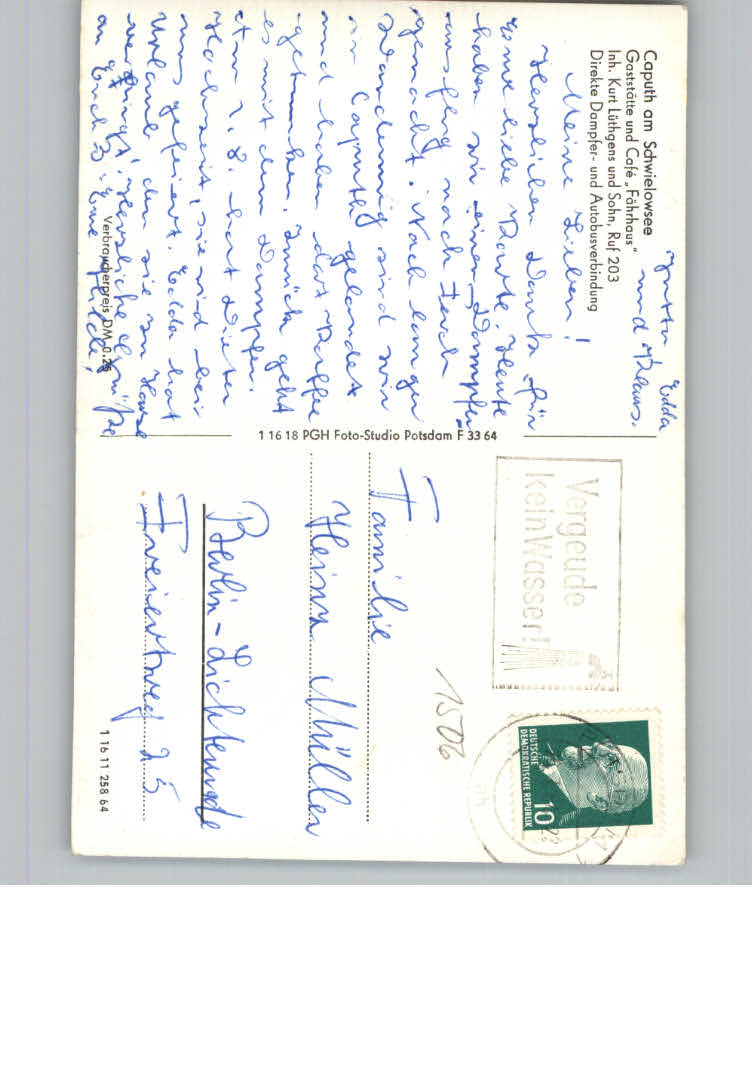 Caputh am Schwielowsee
Gaststätte und Café „Fährhaus“
Inh. Kurt Lüthgens und Sohn, Ruf 203
Direkte Dampfer- und Autobusverbindung
Meine Lieben!
Herzlichen Dank für
Eure liebe Karte. Heute
haben wir einen Dampfer
ausflug nach Ferch
gemacht. Nach langer
Wanderung sind wir
in Caputh gelandet
und haben dort Kaffee
getrunken. Zurück geht
es mit dem Dampfer.
Am 1.8. hat Dieter
Hochzeit, sie wird bei
uns gefeiert. Edda hat
Urlaub, den sie zu Hause
verbringt. Herzliche Grüße
an Euch 3. Eure Hilde,
Jutta Edda
und Klaus.
Verbraucherpreis DM 0.25
1 16 18 PGH Foto-Studio Potsdam F 33 64
Vergeude
kein Wasser!
DEUTSCHE
DEMOKRATISCHE REPUBLIK
10
1506
Familie
Heinz Müller
Berlin-Lichtenrade
25
1 16 11 258 64